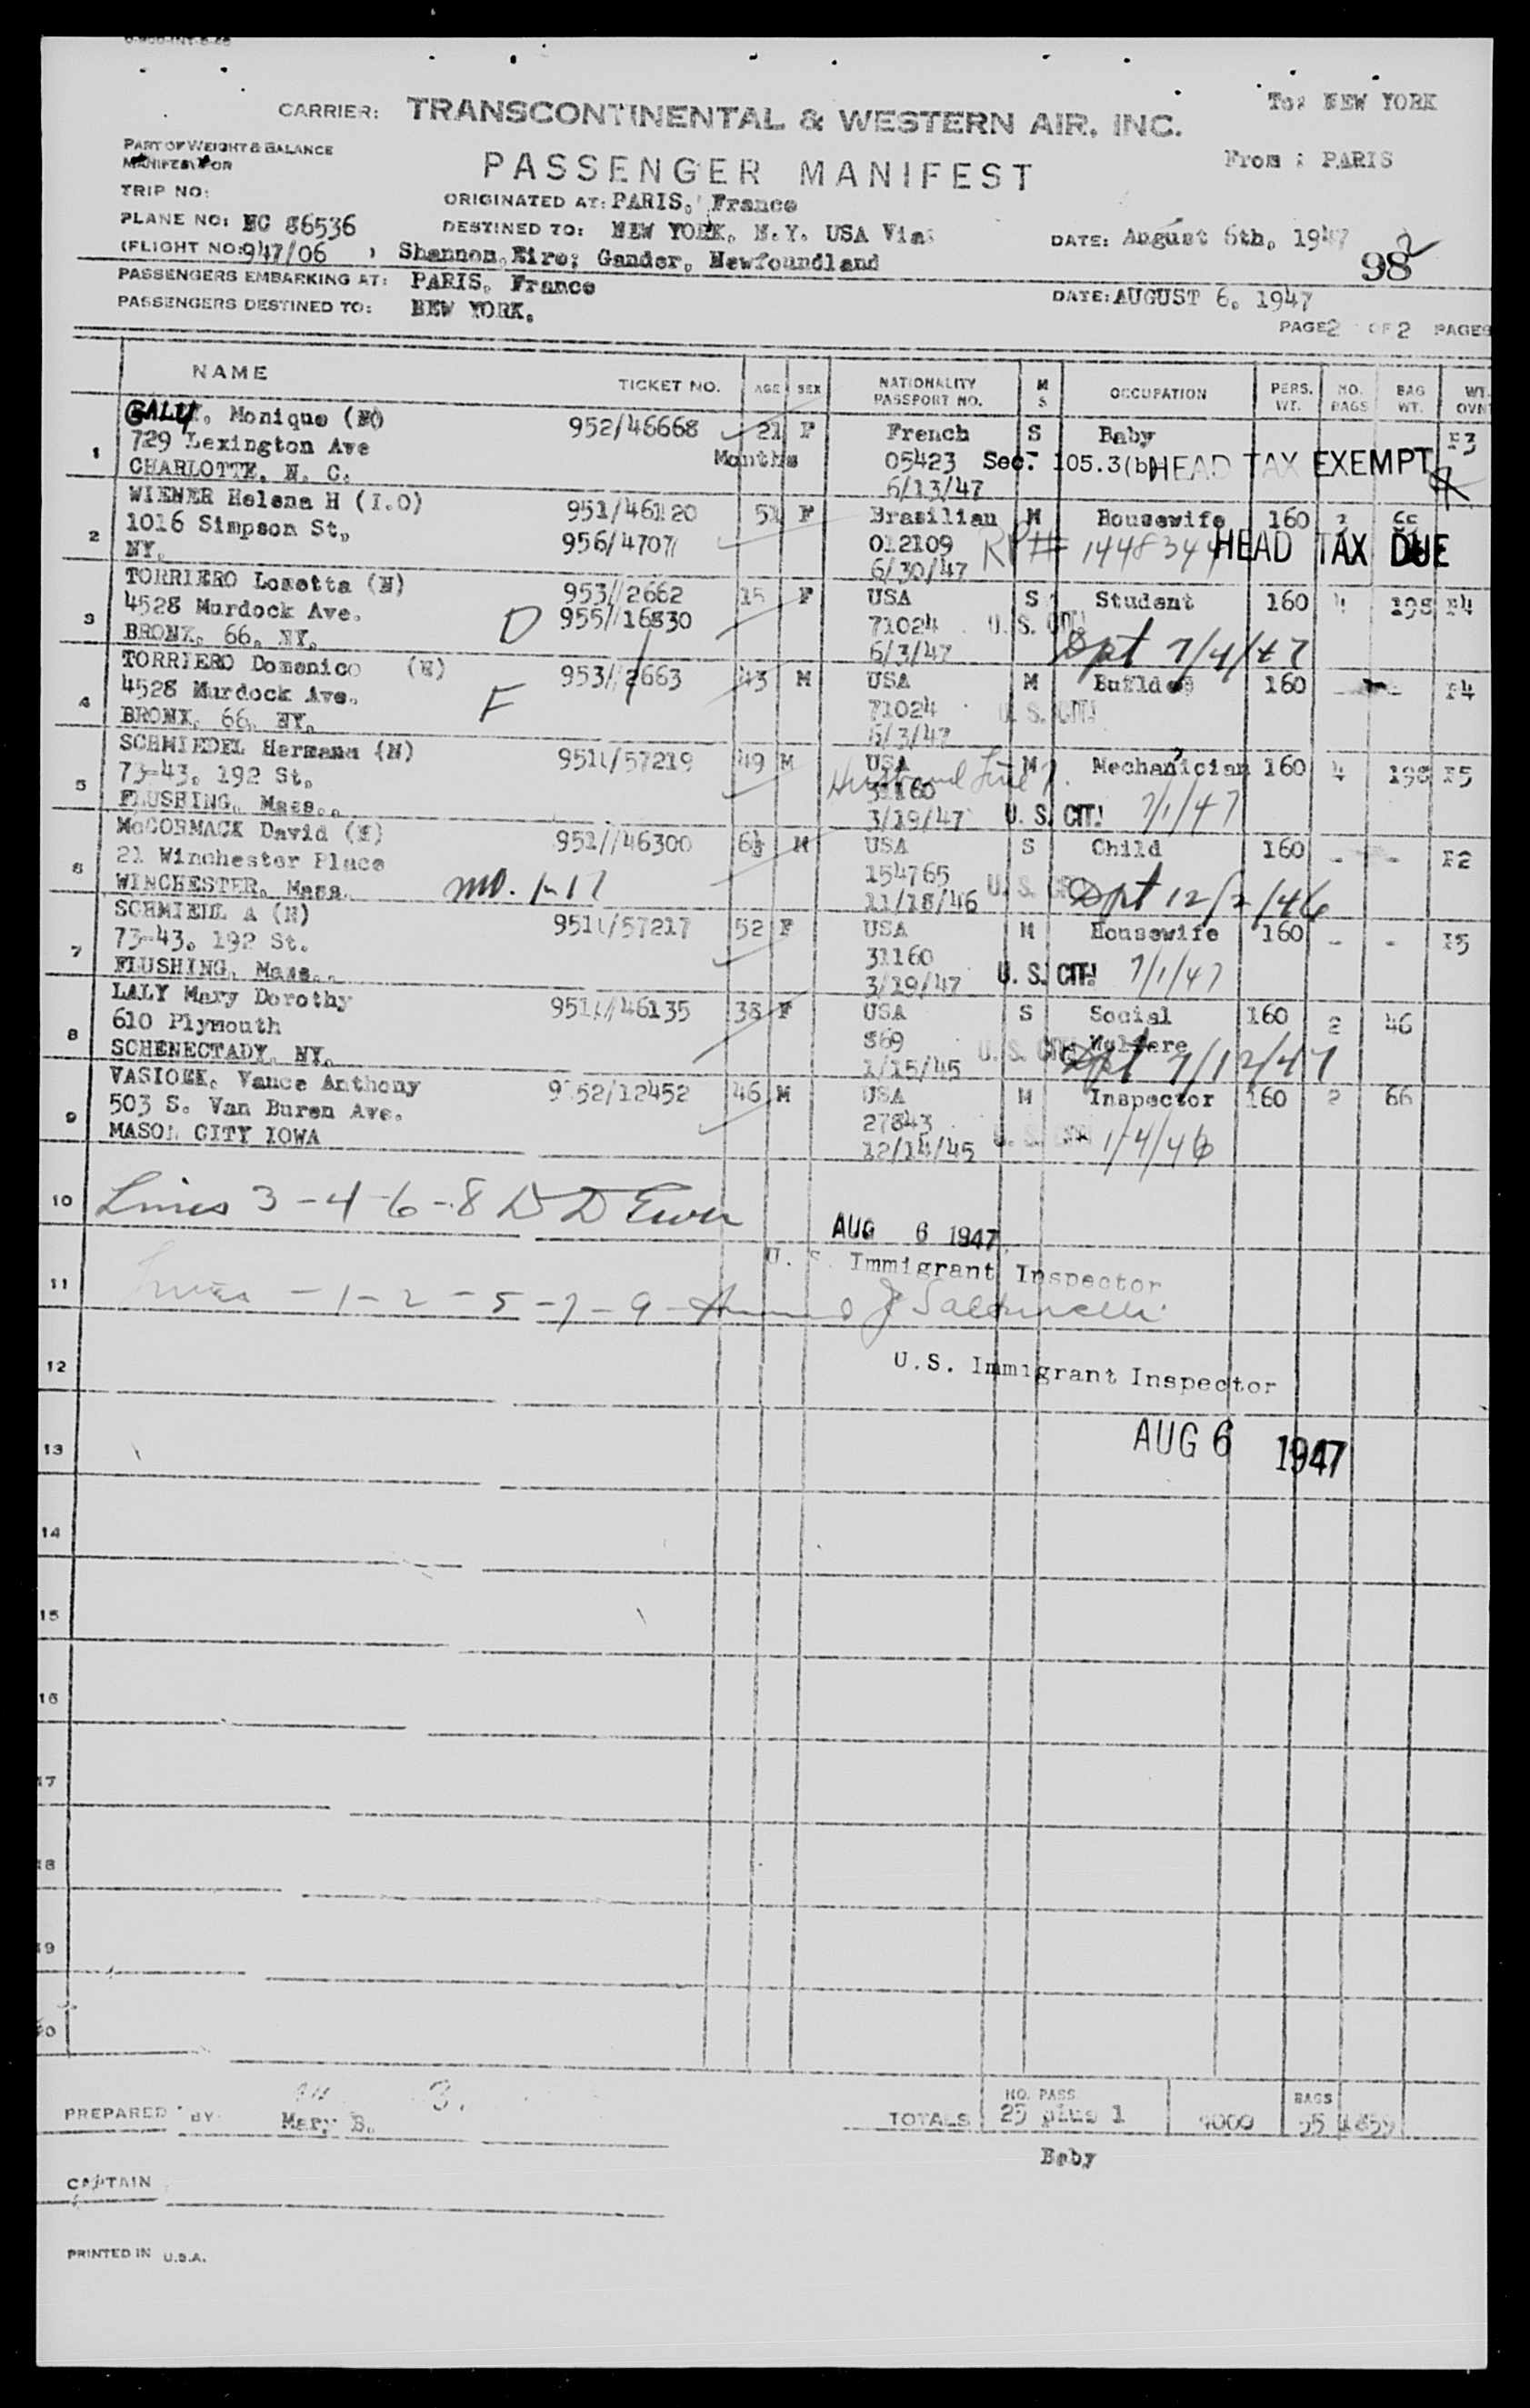 CARRIER: TRANSCONTINENTAL & WESTERN AIR, INC.
To: NEW YORK
PART OF WEIGHT & BALANCE
MANIFEST FOR
PASSENGER MANIFEST
From : PARIS
TRIP NO:
ORIGINATED AT: PARIS, France
PLANE NO: NC 86536
DESTINED TO: NEW YORK, N.Y. USA Via:
DATE: August 6th, 1947
(FLIGHT NO: 947/06 ) Shannon, Eire; Gander, Newfoundland
98
2
PASSENGERS EMBARKING AT: PARIS, France
DATE: AUGUST 6, 1947
PASSENGERS DESTINED TO: NEW YORK.
PAGE 2 OF 2 PAGES
NAME TICKET NO. AGE SEX NATIONALITY PASSPORT NO. M S OCCUPATION PERS. WT. NO. BAGS BAG WT. WT. OVN
1 GALY, Monique 952/46668 21 F French S Baby F3
729 Lexington Ave Months 05423 Sec. 105.3(b) HEAD TAX EXEMPT
CHARLOTTE, N. C. 6/13/47
2 WIENER Helena H (I.O) 951/46120 51 F Brasilian M Housewife 160
1016 Simpson St, 956/4707 012109 RP# 1448344 HEAD TAX DUE
NY. 6/30/47
3 TORRIERO Losetta (N) 953//2662 15 F USA S Student 160 4 198 F4
4528 Murdock Ave. D 955//16830 71024 U. S. CIT!
BRONX, 66, NY. 6/3/47 Dpt 7/4/47
4 TORRIERO Domenico (N) 953//2663 43 M USA M Builder 160 - - F4
4528 Murdock Ave. F 71024 U. S. CIT!
BRONX, 66, NY. 6/3/47
5 SCHMIEDEL Hermann (N) 951/57219 49 M USA M Mechanician 160 4 198 F5
73-43, 192 St. Husband Line 7. 31160
FLUSHING, Mass.. 3/19/47 U. S. CIT! 7/1/47
6 McCORMACK David (N) 951//46300 6½ M USA S Child 160 - - F2
21 Winchester Place 154765
WINCHESTER, Mass. 11/18/46 U. S. CIT! Dpt 12/2/46
7 SCHMIEDL A (N) 951/57217 52 F USA M Housewife 160 - - F5
73-43, 192 St. 31160
FLUSHING, Mass.. 3/19/47 U. S. CIT! 7/1/47
8 LALY Mary Dorothy 951//46135 38 F USA S Social 160 2 46
610 Plymouth 869 Welfare
SCHENECTADY, NY. 1/15/45 U. S. CIT! Dpt 7/12/47
9 VASICEK, Vance Anthony 952/12452 46 M USA M Inspector 160 2 66
503 S. Van Buren Ave. 27843
MASON CITY IOWA 12/14/45 1/4/46
10 Lines 3-4-6-8
AUG 6 1947
U. S. Immigrant Inspector
11 Lines -1-2-5-7-9-
12 U.S. Immigrant Inspector
13 AUG 6 1947
14
15
16
17
18
19
20
PREPARED BY Mary B.
TOTALS NO. PASS 25 plus 1 4000 BAGS 55
Baby
CAPTAIN
PRINTED IN U.S.A.